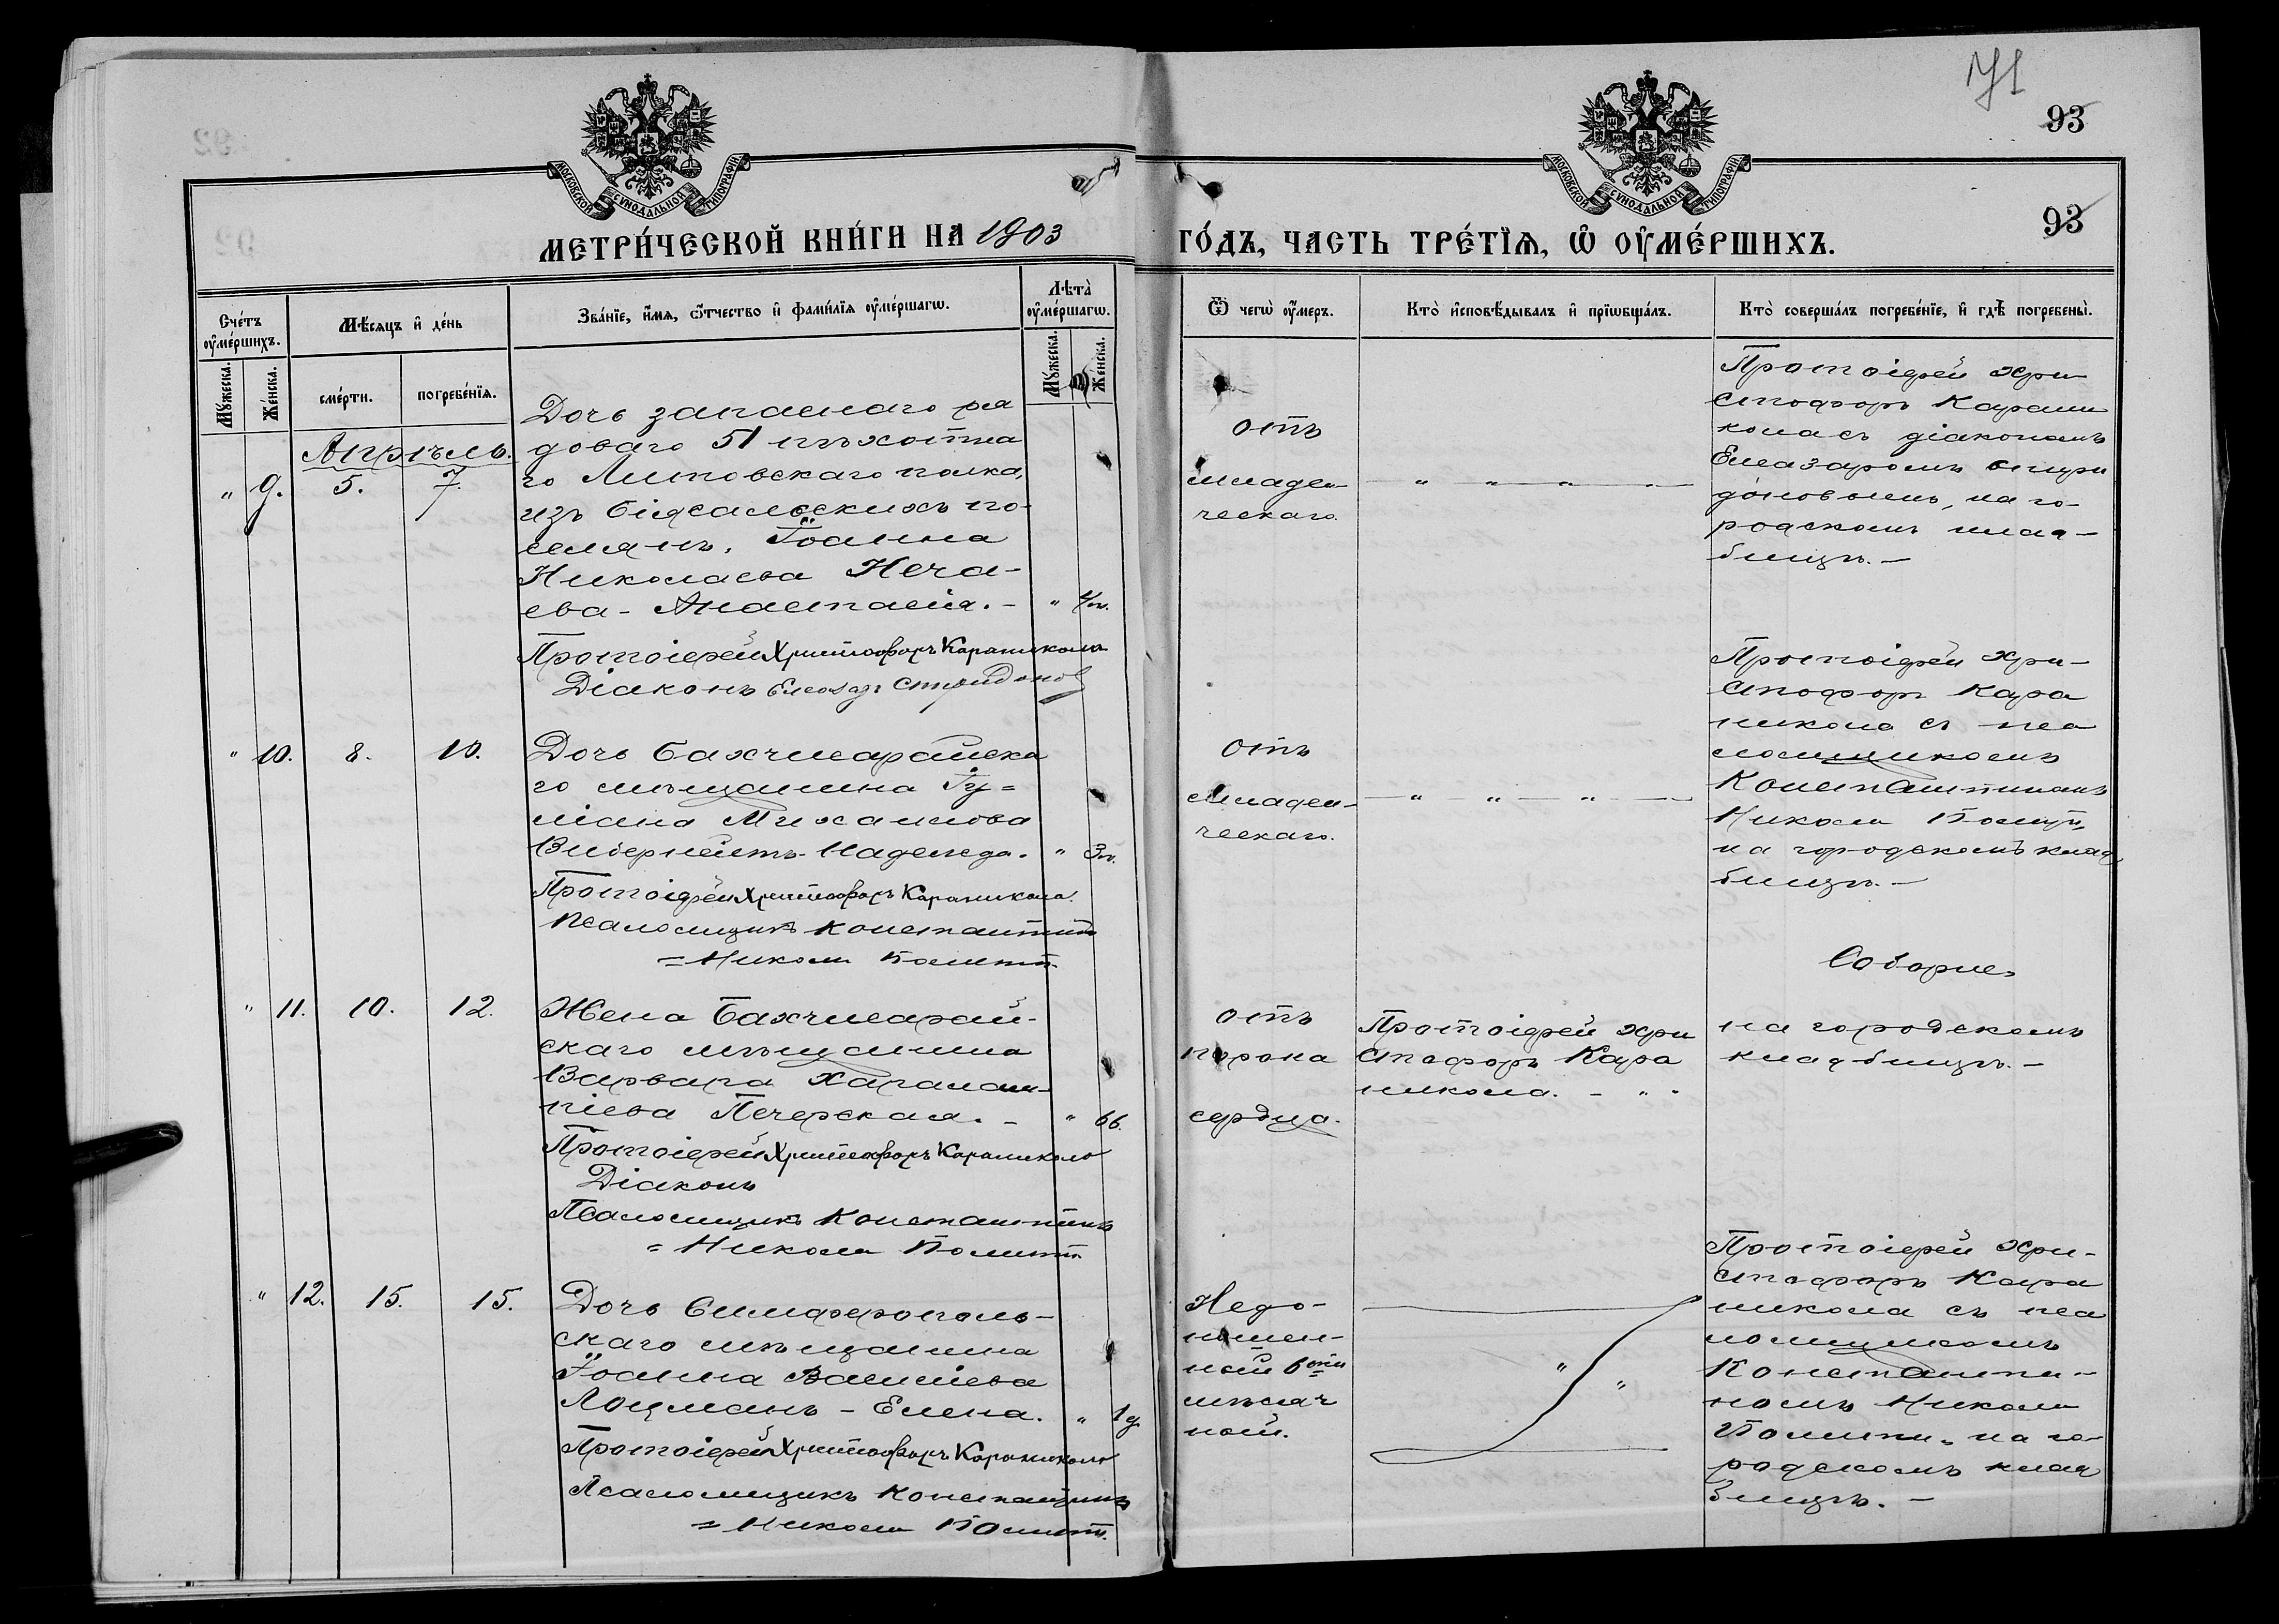 71
93
93
МОСКОВСКОЙ СУНОДАЛЬНОЙ ТИПОГРАФІИ
МОСКОВСКОЙ СУНОДАЛЬНОЙ ТИПОГРАФІИ
МЕТРИ́ЧЕСКОЙ КНИ́ГИ НА 1903
ГО́ДЪ, ЧАСТЬ ТРЕ́ТІѦ, Ѡ ОУ҆МЕ́РШИХЪ.
Сче́тъ оу҆ме́ршихъ.
Мѣ́сяцъ и҆ де́нь
Зва́нїе, и҆́мя, ѻ҆́тчество и҆ фами́лїя оу҆ме́ршагѡ.
Лѣта̀ оу҆ме́ршагѡ.
Мꙋ́жеска.
Же́нска.
сме́рти.
погребе́нїя.
Мꙋ́жеска.
Же́нска.
Ѿ чегѡ̀ оу҆́меръ.
Кто̀ и҆сповѣ́дывалъ и҆ прїѡбща́лъ.
Кто̀ соверша́лъ погребе́нїе, и҆ гдѣ̀ погребены̀.
Апрѣль.
" 9. 5. 7.
Дочь запаснаго ря
доваго 51 пѣхотна
го Литовскаго полка,
изъ
селянъ, Іоанна
Николаева Неча-
ева - Анастасія. - "
Протоіерей Христофоръ Караникола
Діаконъ Елеазаръ Спиридонов
отъ
младен-
ческаго.
" " " "
Протоіерей Хри-
стофоръ Карани
кола съ діакономъ
Елеазаромъ Спири
доновымъ, на го-
родскомъ клад-
бищѣ. -
" 10. 8. 10.
Дочь Бахчисарайска
го мѣщанина Iу=
ліана Михаилова
Надежда. " 3
Протоіерей Христофоръ Караникола.
Псаломщикъ Константинъ
= Никола Полити
отъ
младен-
ческаго.
" " "
Протоіерей Хри-
стофоръ Кара
никола съ пса
ломщикомъ
Константиномъ
Никола Полити,
на городскомъ клад
бищѣ. -
" 11. 10. 12.
Жена Бахчисарай-
скаго мѣщанина
Варвара Харалам-
піева Печерская. - " 66.
Протоіерей Христофоръ Караникола
Діаконъ
Псаломщикъ Константинъ
= Никола Полити
отъ
порока
сердца.
Протоіерей Хри
стофоръ Кара
никола. - " "
Соборне
на городскомъ
кладбищѣ. -
" 12. 15. 15.
Дочь Симферополь-
скаго мѣщанина
Іоанна Васильева
Лоцманъ - Елена. " 1 д.
Протоіерей Христофоръ Караникола
Псаломщикъ Константинъ
= Никола Полити
Недо-
ношен-
ной 6ти
мѣсяч
ной.
" "
Протоіерей Хри-
стофоръ Кара
никола съ пса
ломщикомъ
Константи-
номъ Никола
Полити, на го-
родскомъ клад
бищѣ. -